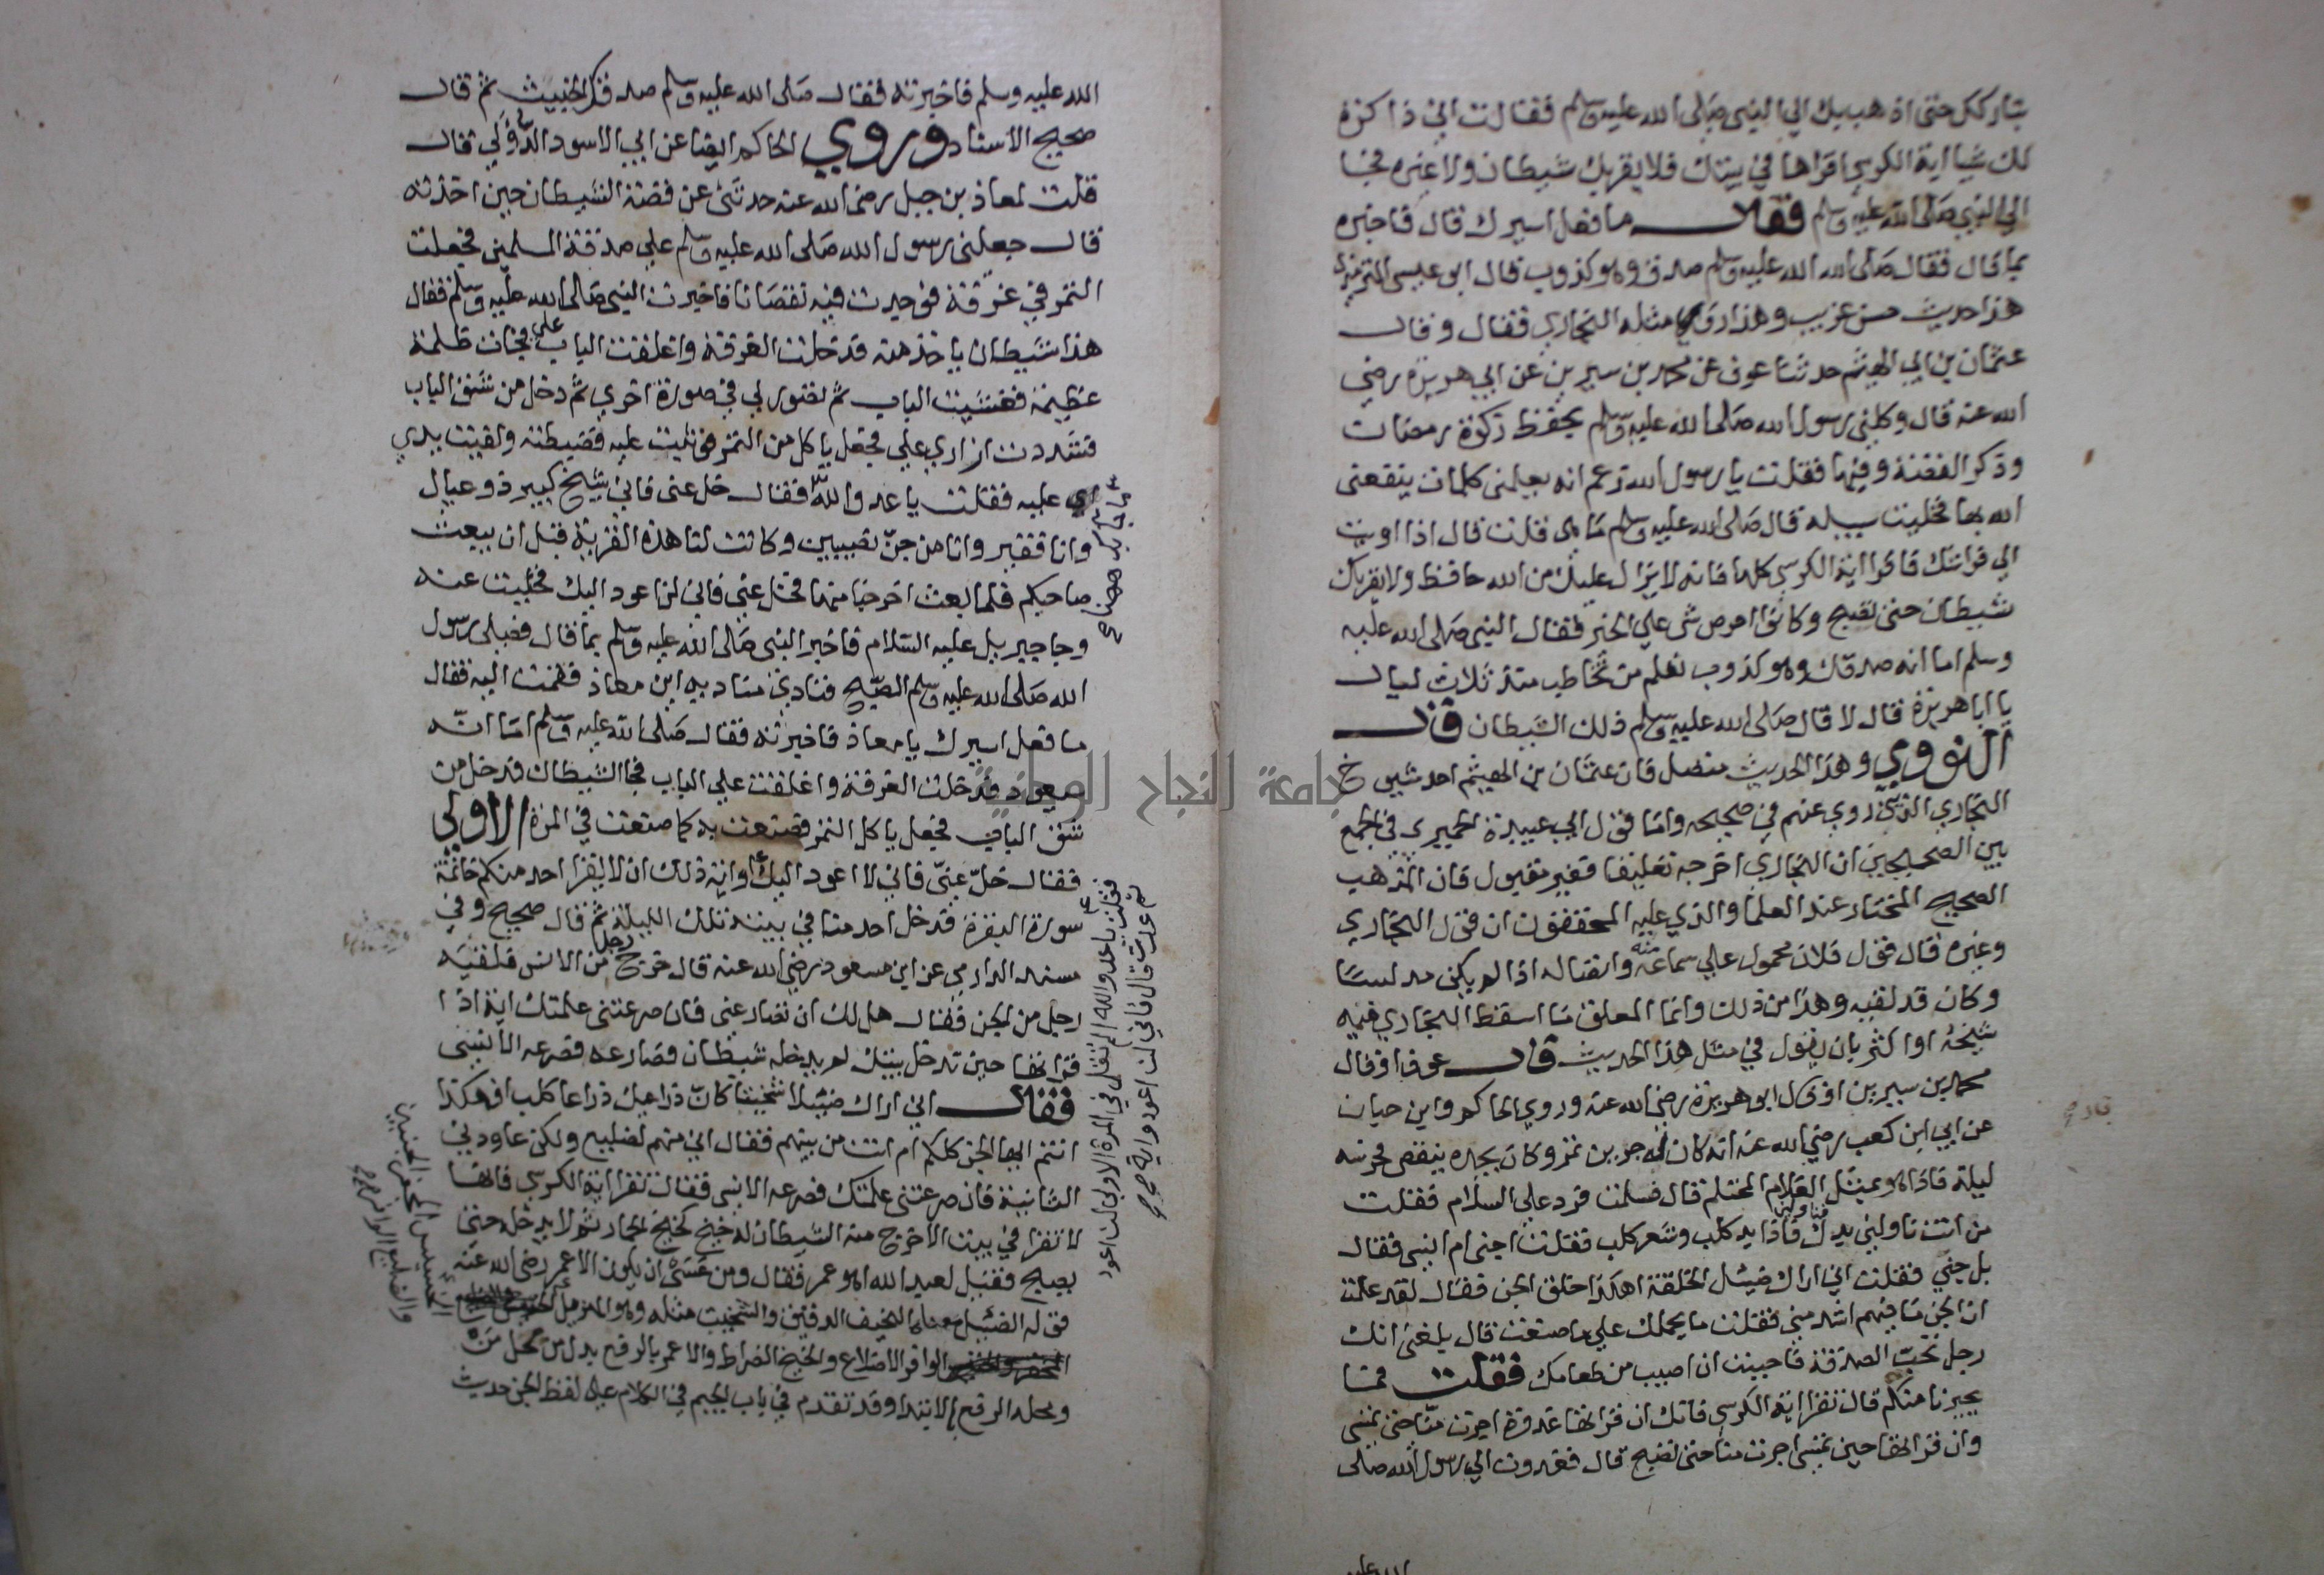 بتاركك حتى اذهب بك الي النبي صلى الله عليه وسلم فقالت اني ذاكرة
لك شيا اية الكرسي اقراها في بيتك فلا يقربك شيطان ولا غيره فجا
الي النبي صلى الله عليه وسلم فقال ما فعل اسيرك قال فاخبره
بما قال فقال صلى الله عليه وسلم صدق وهو كذوب قال ابو عيسى الترمذي
هذا حديث حسن غريب وهذا روى مثله البخاري فقال وقال
عثمان بن ابي الهيثم حدثنا عوف عن محمد بن سيرين عن ابي هريرة رضي
الله عنه قال وكلني رسول الله صلى الله عليه وسلم بحفظ زكوة رمضان
وذكر القصة وفيها فقلت يا رسول الله زعم انه يعلمني كلمات ينفعني
الله بها فخليت سبيله قال صلى الله عليه وسلم ما هي قلت قال اذا اويت
الي فراشك فاقرا اية الكرسي كلها فانه لا يزال عليك من الله حافظ ولا يقربك
شيطان حتى تصبح وكانوا احرص شي علي الخير فقال النبي صلى الله عليه
وسلم اما انه صدقك وهو كذوب تعلم من تخاطب منذ ثلاث ليال
يا ابا هريرة قال لا قال صلى الله عليه وسلم ذلك الشيطان قال
النووي وهذا الحديث متصل فان عثمان بن الهيثم احد شيوخ
البخاري الذين روي عنهم في صحيحه واما قول ابي عبيدة الحميري في الجمع
بين الصحيحين ان البخاري اخرجه تعليقا فغير مقبول فان المذهب
الصحيح المختار عند العلما والذي عليه المحققون ان قول البخاري
وغيره قال فلان محمول علي سماعه منه واتصاله اذا لم يكن مدلسا
وكان قد لقيه وهذا من ذلك وانما المعلق ما اسقط البخاري فيه
شيخه او اكثر بان يقول في مثل هذا الحديث قال عوف او قال
محمد بن سيرين او قال ابو هريرة رضي الله عنه وروي الحاكم وابن حبان
عن ابي ابن كعب رضي الله عنه انه كان له جرين تمر وكان يجده ينقص فحرسه
ليلة فاذا هو بمثل الغلام المحتلم قال فسلمت فرد علي السلام فقلت
من انت ناولني يدك فناولني فاذا يد كلب وشعر كلب فقلت اجني ام انسي فقال
بل جني فقلت اني اراك ضيئل الخلقة اهكذا خلق الجن فقال لقد علمت
ان الجن ما فيهم اشد مني فقلت ما يحملك علي ما صنعت قال بلغني انك
رجل تحب الصدقة فاحببت ان اصيب من طعامك فقلت فما
يجيرنا منكم قال تقرا اية الكرسي فانك ان قراتها غدوة اجرت منا حتى تمسي
وان قراتها حين تمسي اجرت منا حتى تصبح قال فغدوت الي رسول الله صلى
الله عليه
الله عليه وسلم فاخبرته فقال صلى الله عليه وسلم صدقك الخبيث ثم قال
صحيح الاسناد وروي الحاكم ايضا عن ابي الاسود الدؤلي قال
قلت لمعاذ بن جبل رضي الله عنه حدثني عن قصة الشيطان حين اخذته
قال جعلني رسول الله صلى الله عليه وسلم علي صدقة المسلمين فجعلت
التمر في غرفة فوجدت فيه نقصانا فاخبرت النبي صلى الله عليه وسلم فقال
هذا شيطان ياخذ منه فدخلت الغرفة واغلقت الباب علي فجات ظلمة
عظيمة فغشيت الباب ثم تصور لي في صورة اخري ثم دخل من شق الباب
فشددت ازاري علي فجعل ياكل من التمر فوثبت عليه فضبطته ولقيت يدي
عليه فقلت يا عدو الله فقال خل عني فاني شيخ كبير ذو عيال
وانا فقير وانا من جن نصيبين وكانت لنا هذه القرية قبل ان يبعث
صاحبكم فلما بعث اخرجنا منها فخل عني فاني لن اعود اليك فخليت عنه
وجا جبريل عليه السلام فاخبر النبي صلى الله عليه وسلم بما قال فصلى رسول
الله صلى الله عليه وسلم الصبح فنادي مناديه اين معاذ فقمت اليه فقال
ما فعل اسيرك يا معاذ فاخبرته فقال صلى الله عليه وسلم اما انه
سيعود فدخلت الغرفة واغلقت علي الباب فجا الشيطان فدخل من
شق الباب فجعل ياكل التمر فصنعت به كما صنعت في المرة الاولي
فقال خل عني فاني لا اعود اليك واية ذلك ان لا يقرا احد منكم خاتمة
سورة البقرة فدخل احد منا في بيته تلك الليلة ثم قال صحيح وفي
مسند الدارمي عن ابن مسعود رضي الله عنه قال خرج رجل من الانس فلقيه
رجل من الجن فقال هل لك ان تصارعني فان صرعتني علمتك اية اذا
قراتها حين تدخل بيتك لم يدخله شيطان فصارعه فصرعه الانسي
فقال اني اراك ضيئلا شخيتا كان ذراعيك ذراعا كلب افهكذا
انتم ايها الجن كلكم ام انت من بينهم فقال اني منهم لضليع ولكن عاودني
الثانية فان صرعتني علمتك فصرعه الانسي فقال تقرا اية الكرسي فانها
لا تقرا في بيت الا خرج منه الشيطان له خبج كخبج الحمار ثم لا يدخله حتى
يصبح فقيل لعبد الله اهو عمر فقال ومن عسى ان يكون الا عمر رضي الله عنه
قوله الضئيل معناه النحيف الدقيق والشخيت مثله وهو المهزول
الوافر الاضلاع والخبج الضراط والا عمر بالرفع بدل من محل من
ومحله الرفع بالابتدا وقد تقدم في باب الجيم في الكلام علي لفظ الجن حديث
فقلت يا عدو الله الم تقل في المرة الاولي لن اعود
ثم عدت قال فاني لن اعود واية
جامعة النجاح الوطنية